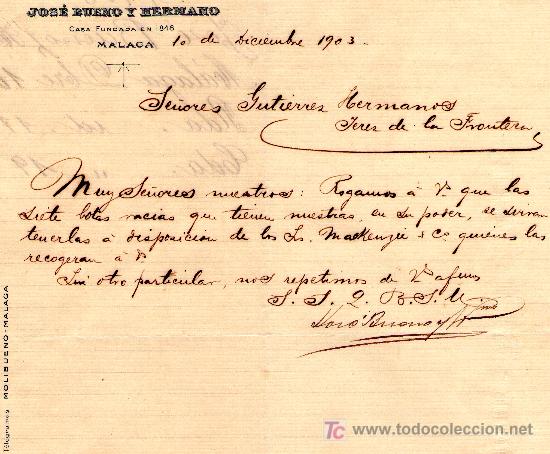 JOSÉ BUENO Y HERMANO
CASA FUNDADA EN 1846
MALAGA
10 de Diciembre 1903.
Señores Gutierrez Hermanos
Jerez de la Frontera
Muy Señores nuestros: Rogamos á Vs. que las
siete botas vacias que tienen nuestras, en su poder, se sirvan
tenerlas á disposicion de los Srs. Mackenzie & Cª quienes las
recogeran á Vs
Sin otro particular, nos repetimos de Vs afmos
S. S. Q. B. S. M
José Bueno y Hmno
Telegramas MOLIBUENO-MALAGA
TC todocoleccion
www.todocoleccion.net